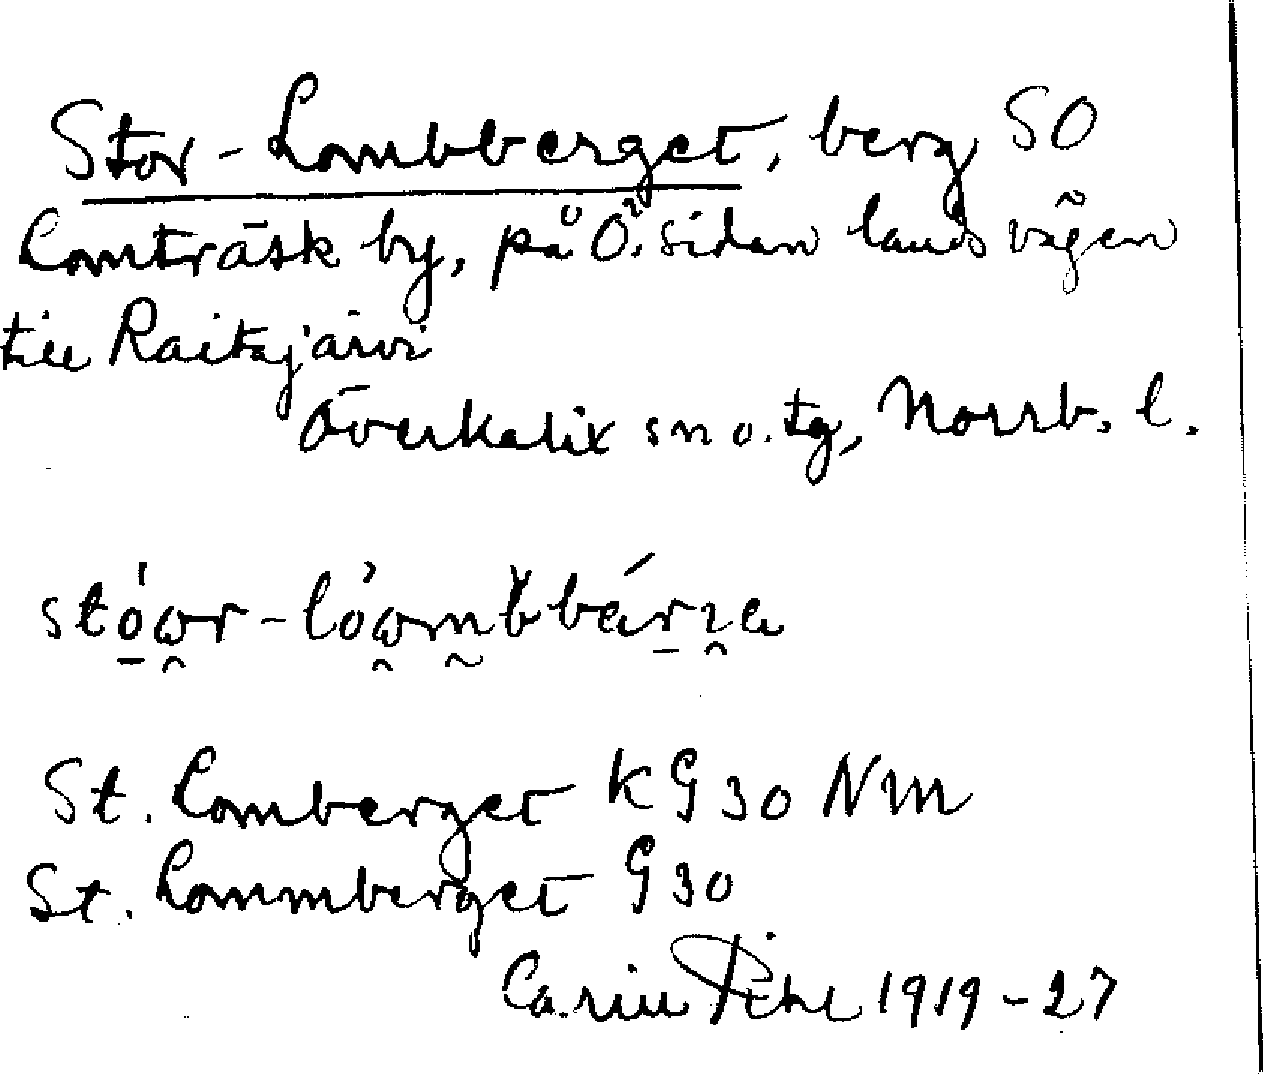 Stor-Lombberget, berg SO
Lomträsk by, på Ö. sidan landsvägen
till Raitajärvi
Överkalix sn o. tg, Norrb. l.
stó̱ω̯r-lóω̯m̰b̆bár̠ɿ̯a
St. Lomberget KG 30 Nm
St. Lommberget G 30
Carin Pihl 1919-27